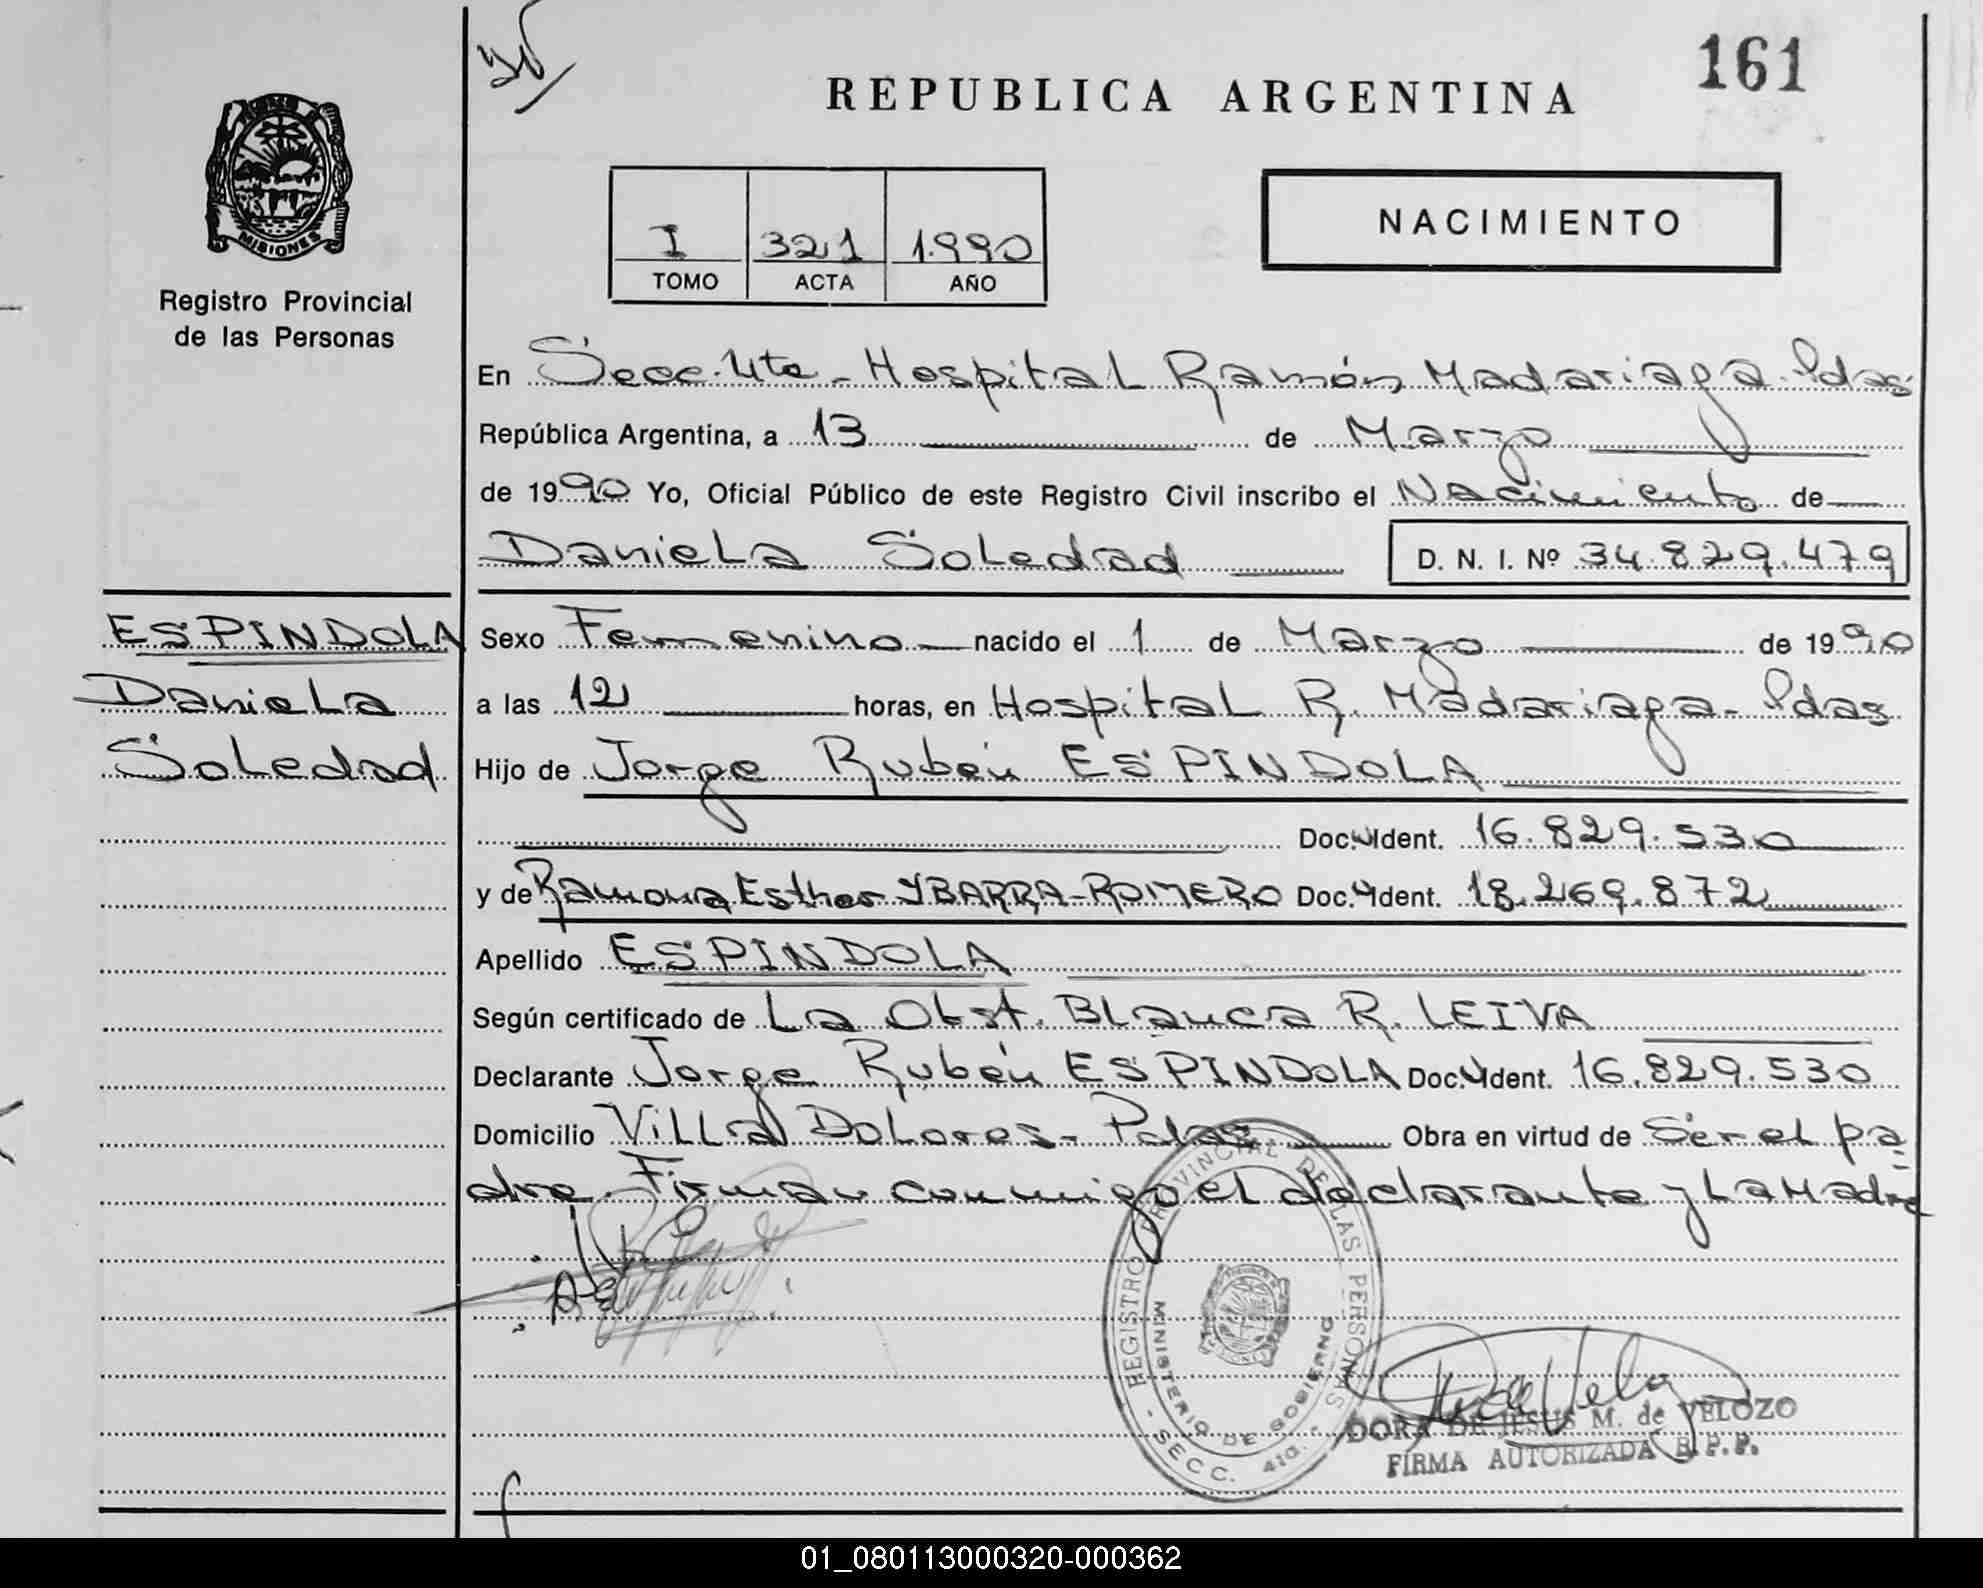 161
REPUBLICA ARGENTINA
MISIONES
Registro Provincial
de las Personas
I 321 1.990
TOMO ACTA AÑO
NACIMIENTO
En Secc. 4ta - Hospital Ramón Madariaga - Pdas
República Argentina, a 13 de Marzo
de 1990 Yo, Oficial Público de este Registro Civil inscribo el Nacimiento de
Daniela Soledad D. N. I. Nº 34.829.479
ESPINDOLA
Daniela
Soledad
Sexo Femenino nacido el 1 de Marzo de 1990
a las 12 horas, en Hospital R. Madariaga - Pdas
Hijo de Jorge Rubén ESPINDOLA
Doc. Ident. 16.829.530
y de Ramona Esther YBARRA-ROMERO Doc. Ident. 18.269.872
Apellido ESPINDOLA
Según certificado de La Obst. Blanca R. LEIVA
Declarante Jorge Rubén ESPINDOLA Doc. Ident. 16.829.530
Domicilio Villa Dolores - Pdas Obra en virtud de Ser el pa
dre. Firman conmigo el declarante y La Madre
REGISTRO PROVINCIAL DE LAS PERSONAS
MINISTERIO DE GOBIERNO
- SECC. 4ta. -
DORA DE JESUS M. de VELOZO
FIRMA AUTORIZADA R.P.P.
01_080113000320-000362